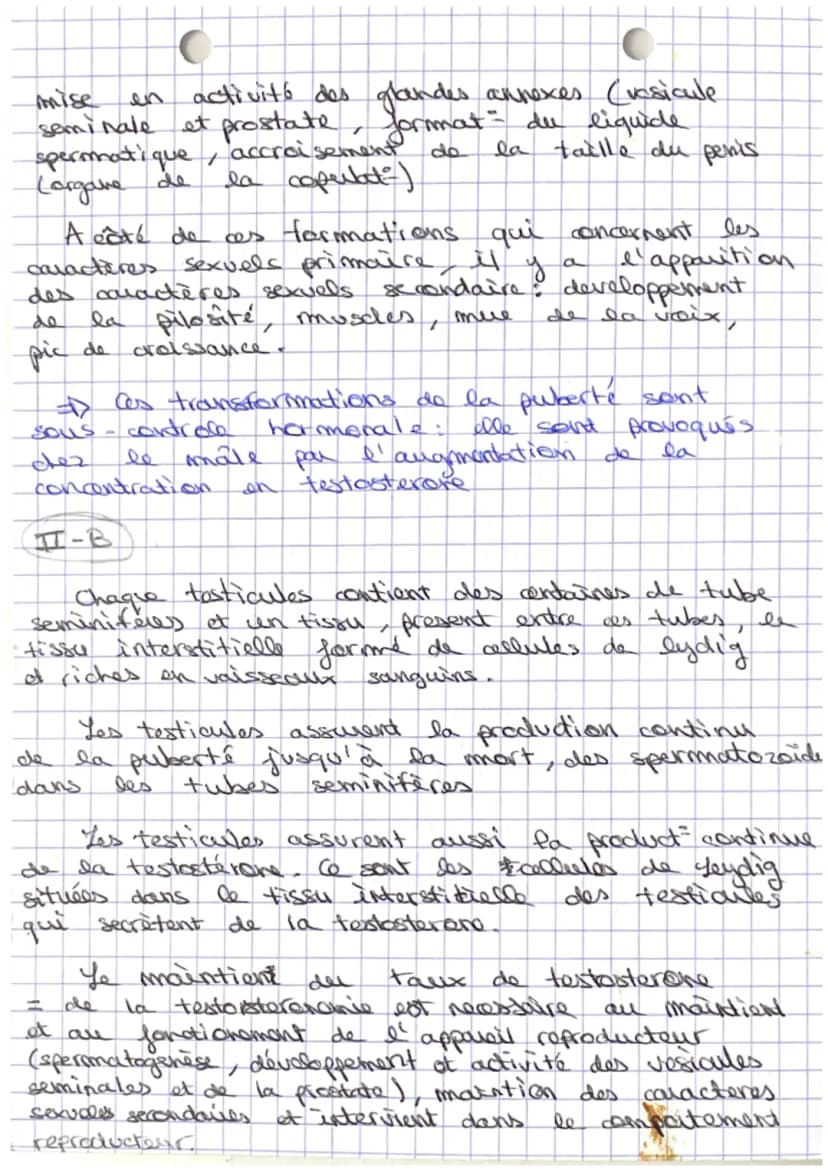 mise en activité des glandes annexes (vésicule
seminale et prostate, format° du liquide
spermatique, accroisement de la taille du penis
(organe de la copulat°)
A côté de ces formations qui concernent les
caractères sexuels primaire, il y a l'apparition
des caractères sexuels secondaire : developpement
de la pilosité, muscles, mue de la voix,
pic de croissance.
=> Ces transformations de la puberté sont
sous-controle hormonale : elle sont provoqués
chez le mâle par l'augmentation de la
concentration en testosterone
II-B
Chaque testicules contient des centaines de tube
seminifères et un tissu, present entre ces tubes, le
tissu interstitielle formé de cellules de leydig
et riches en vaisseaux sanguins.
Les testicules assurent la production continu
de la puberté jusqu'à la mort, des spermatozoïde
dans les tubes seminifères
Les testicules assurent aussi la product° continue
de la testostérone. Ce sont les cellules de Leydig
situées dans le tissu interstitielle des testicules
qui secrètent de la testosterone.
Le maintient du taux de testosterone
= de la testosteronemie est necessaire au maintient
et au fonctionement de l'appareil reproducteur
(spermatogenèse, développement et activité des vésicules
seminales et de la prostate), maintien des caracteres
sexuels secondaires et intervient dans le comportement
reproducteur.